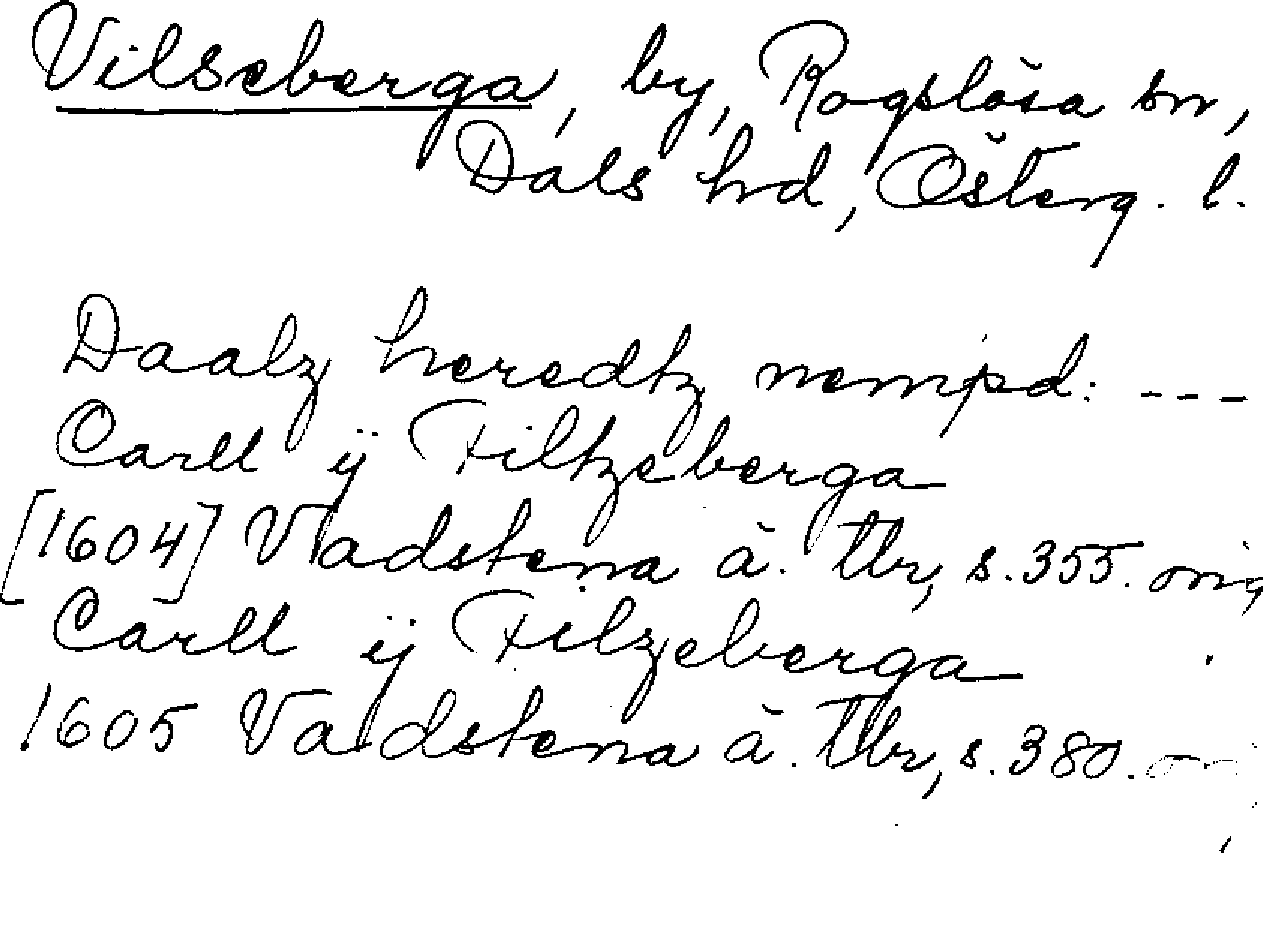 Vilseberga, by, Rogslösa sn,
Dals hd, Österg. l.
Daalz heredtz nempd: ---
Carll ÿ Filtzeberga
[1604] Vadstena ä. tbr, s. 355. orig
Carll ÿ Filzeberga
1605 Vadstena ä. tbr, s. 380.